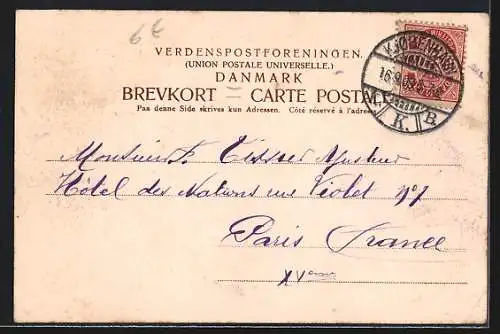 6 €
VERDENSPOSTFORENINGEN.
(UNION POSTALE UNIVERSELLE.)
DANMARK
BREVKORT — CARTE POSTALE
Paa denne Side skrives kun Adressen. Côté réservé à l'adresse
KJØBENHAVN
K. B
Monsieur F.
Hôtel des Nations rue Violet nº 7
Paris France
XVeme